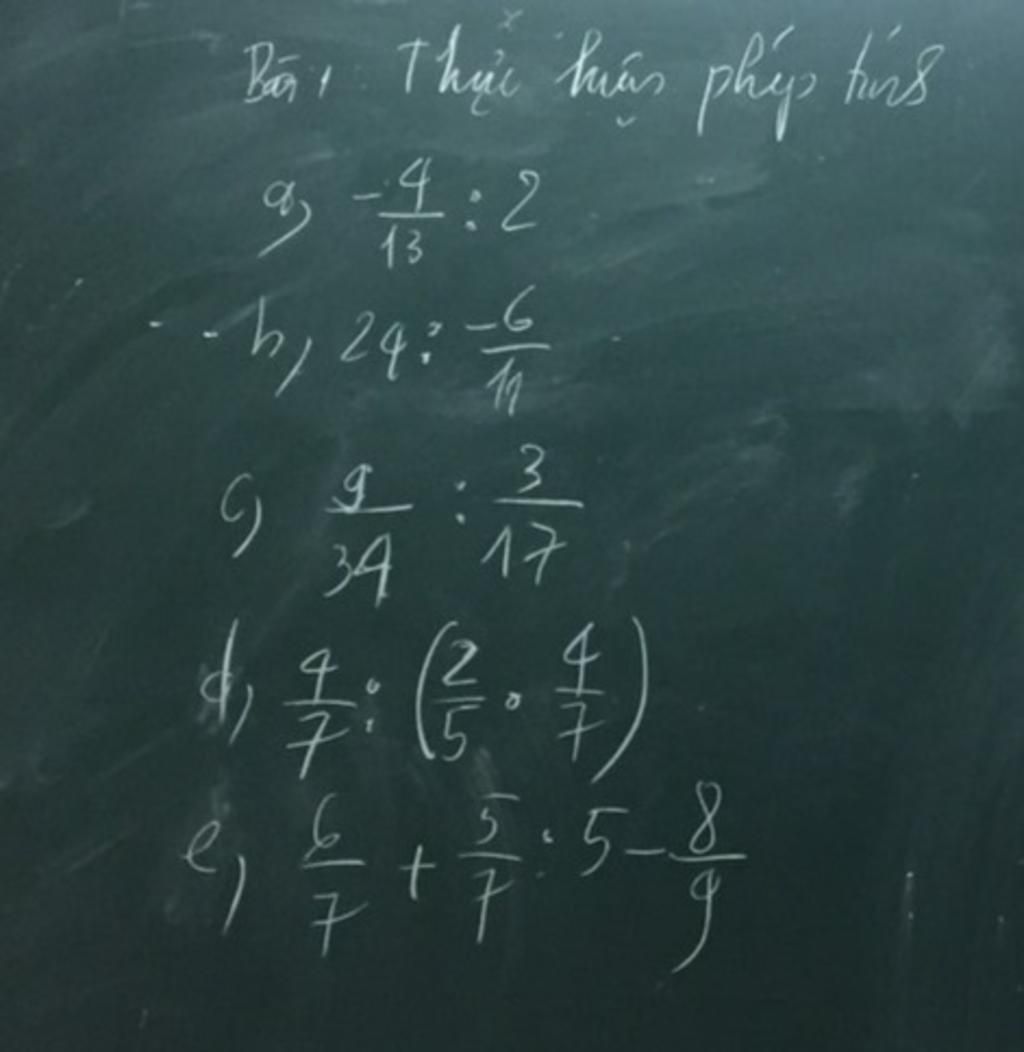 Bài 1: Thực hiện phép tính
a, -4/13 : 2
b, 24 : -6/11
c, 9/34 : 3/17
d, 4/7 : (2/5 . 4/7)
e, 6/7 + 5/7 : 5 - 8/9